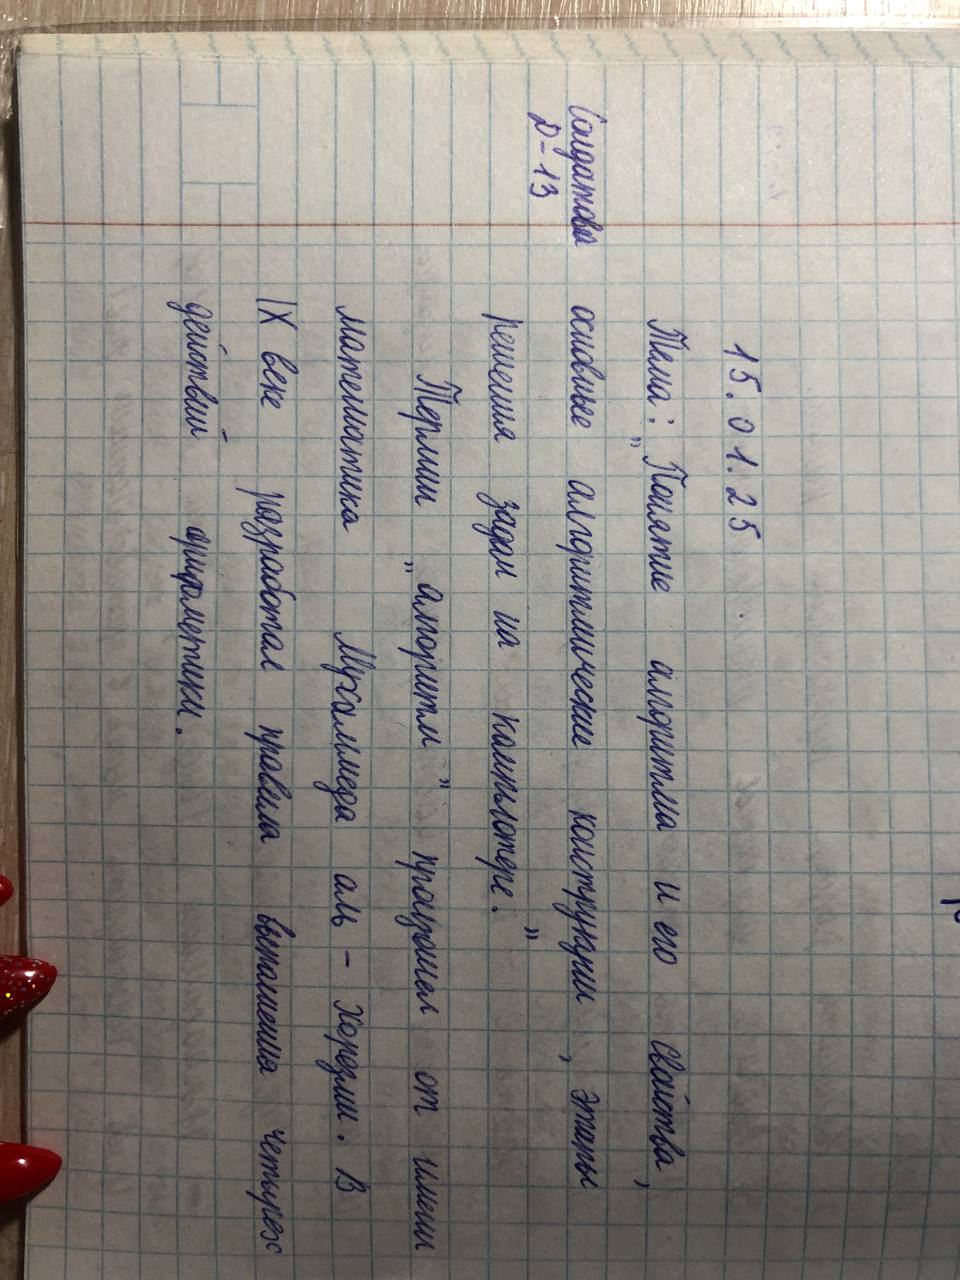 15.01.25
Тема: „Понятие алгоритма и его свойства,
Солдатова
Д-13
основные алгоритмические конструкции, этапы
решения задач на компьютере."
Термин „алгоритм" произошел от имени
математика Мухаммеда аль-Хорезми. В
IX веке разработал правила выполнения четырех
действий арифметики.